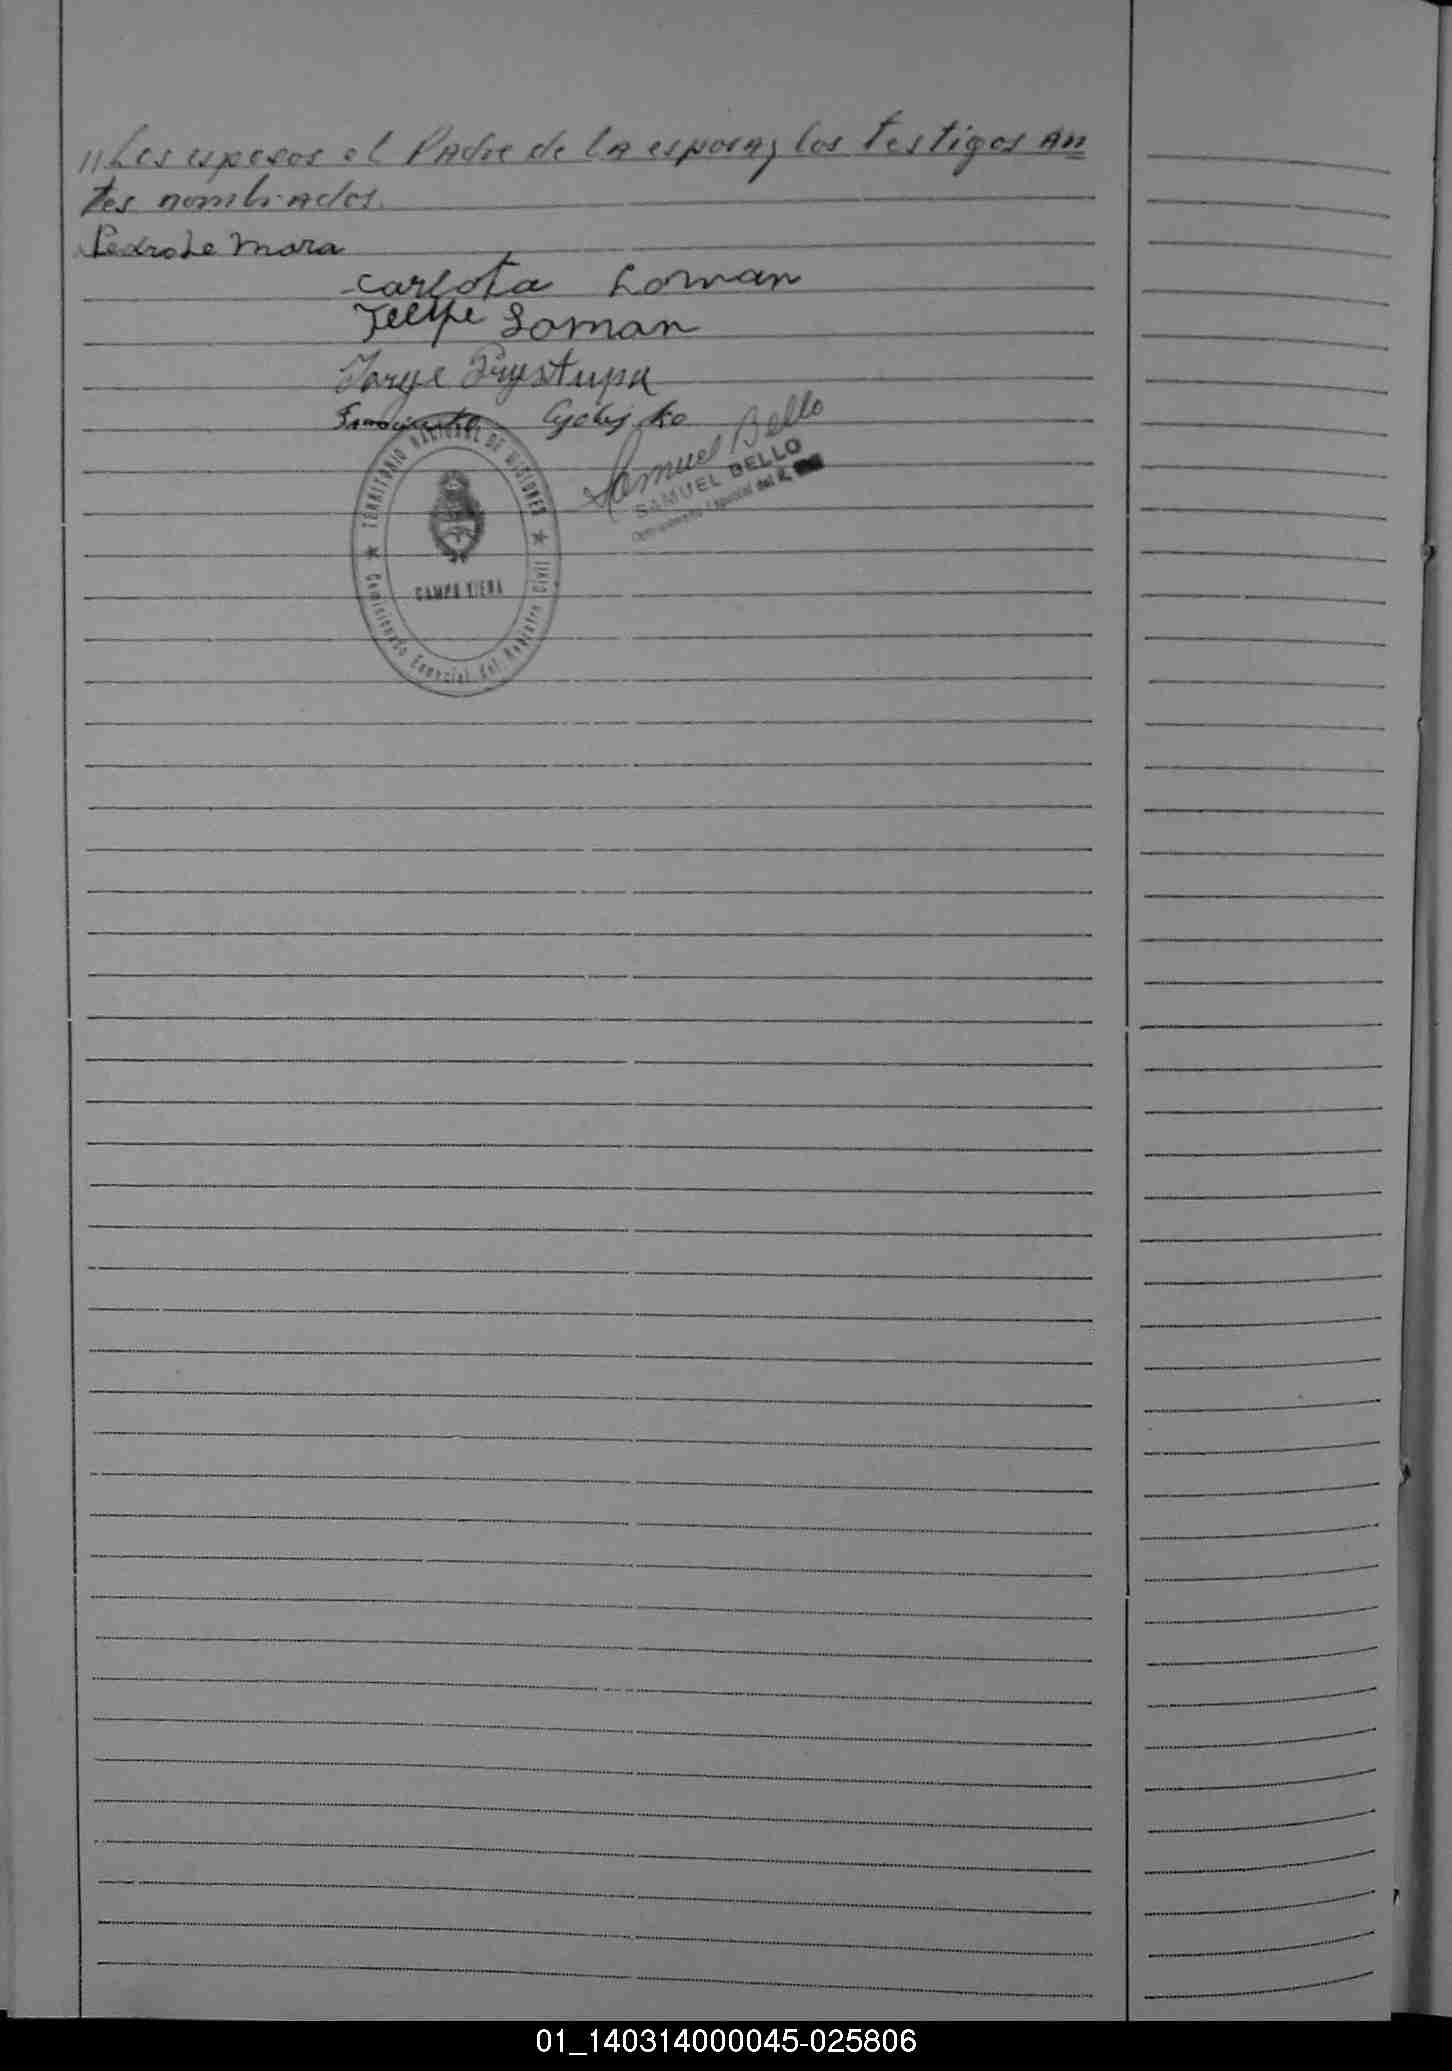 // Los esposos el Padre de la esposa y los testigos an=
tes nombrados.
Pedro de Mara
Carlota Loman
Felipe Loman
Jorge Prystupa
Samuel Bello
SAMUEL BELLO
Comisionado Especial del R.
TERRITORIO NACIONAL DE MISIONES
CAMPO VIERA
Comisionado Especial del Registro Civil
01_140314000045-025806